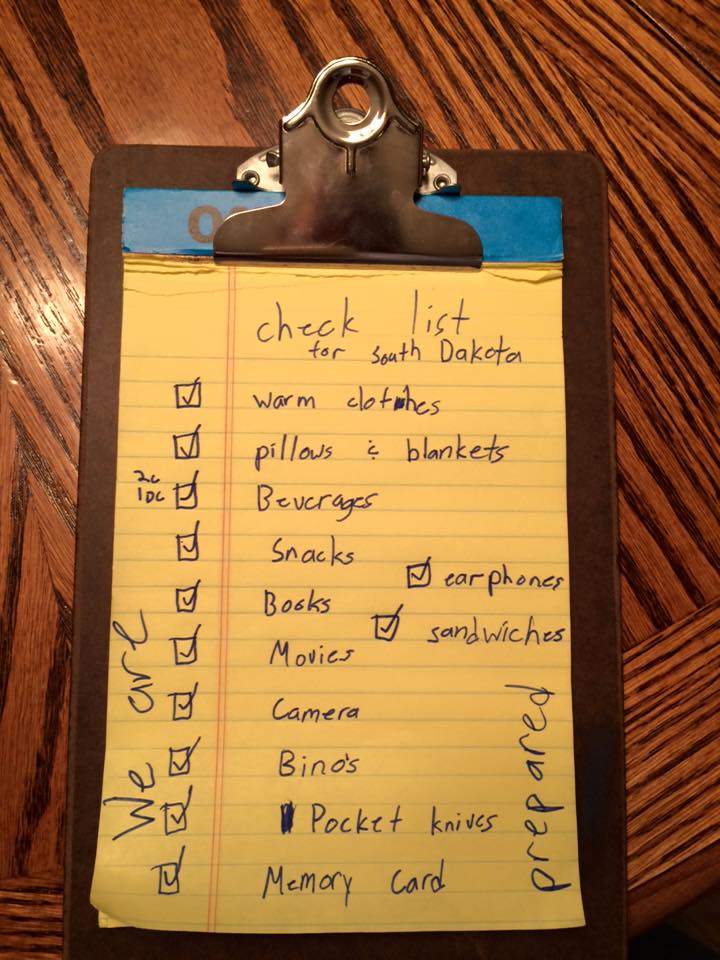 check list
for South Dakota
warm clothes
pillows & blankets
2c
1DC
Beverages
Snacks
earphones
Books
sandwiches
Movies
Camera
Bino's
Pocket knives
Memory Card
We are
prepared